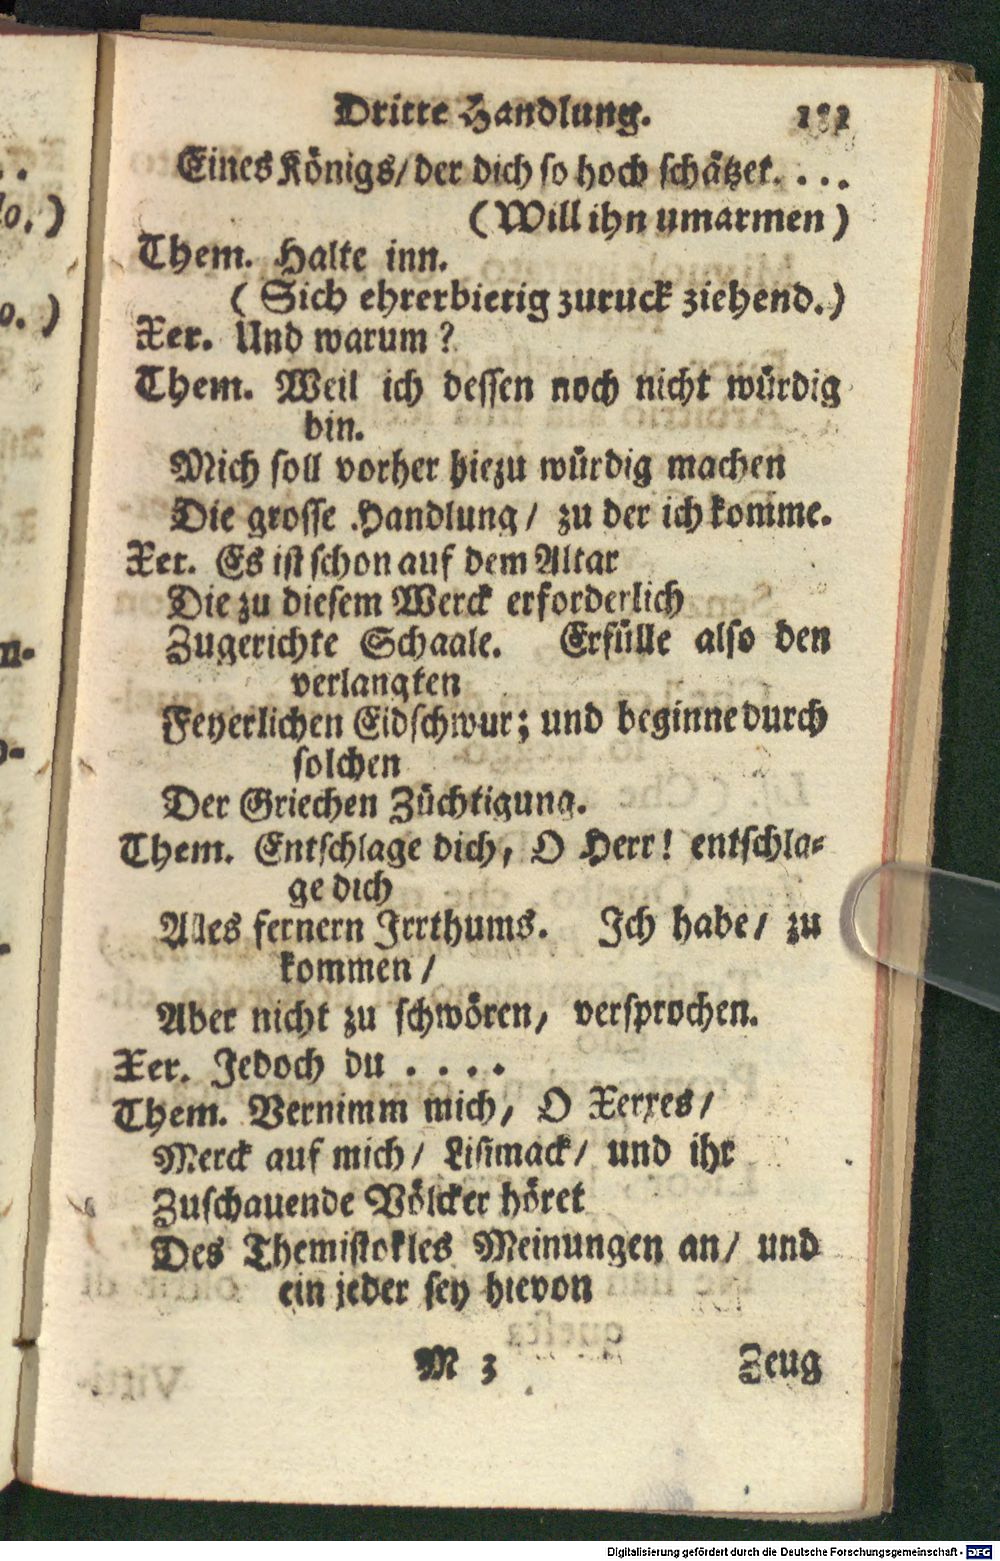 Dritte Handlung. 181
Eines Königs/ der dich so hoch schätzet. . . .
(Will ihn umarmen)
Them. Halte inn.
(Sich ehrerbietig zuruck ziehend.)
Xer. Und warum?
Them. Weil ich dessen noch nicht würdig
bin.
Mich soll vorher hiezu würdig machen
Die grosse Handlung/ zu der ich komme.
Xer. Es ist schon auf dem Altar
Die zu diesem Werck erforderlich
Zugerichte Schaale. Erfülle also den
verlangten
Feyerlichen Eidschwur; und beginne durch
solchen
Der Griechen Züchtigung.
Them. Entschlage dich, O Herr! entschla-
ge dich
Alles fernern Irrthums. Ich habe/ zu
kommen/
Aber nicht zu schwören, versprochen.
Xer. Jedoch du . . . .
Them. Vernimm mich, O Xerxes/
Merck auf mich/ Lisimack/ und ihr
Zuschauende Völcker höret
Des Themistokles Meinungen an/ und
ein jeder sey hievon
M 3 Zeug
Digitalisierung gefördert durch die Deutsche Forschungsgemeinschaft - DFG